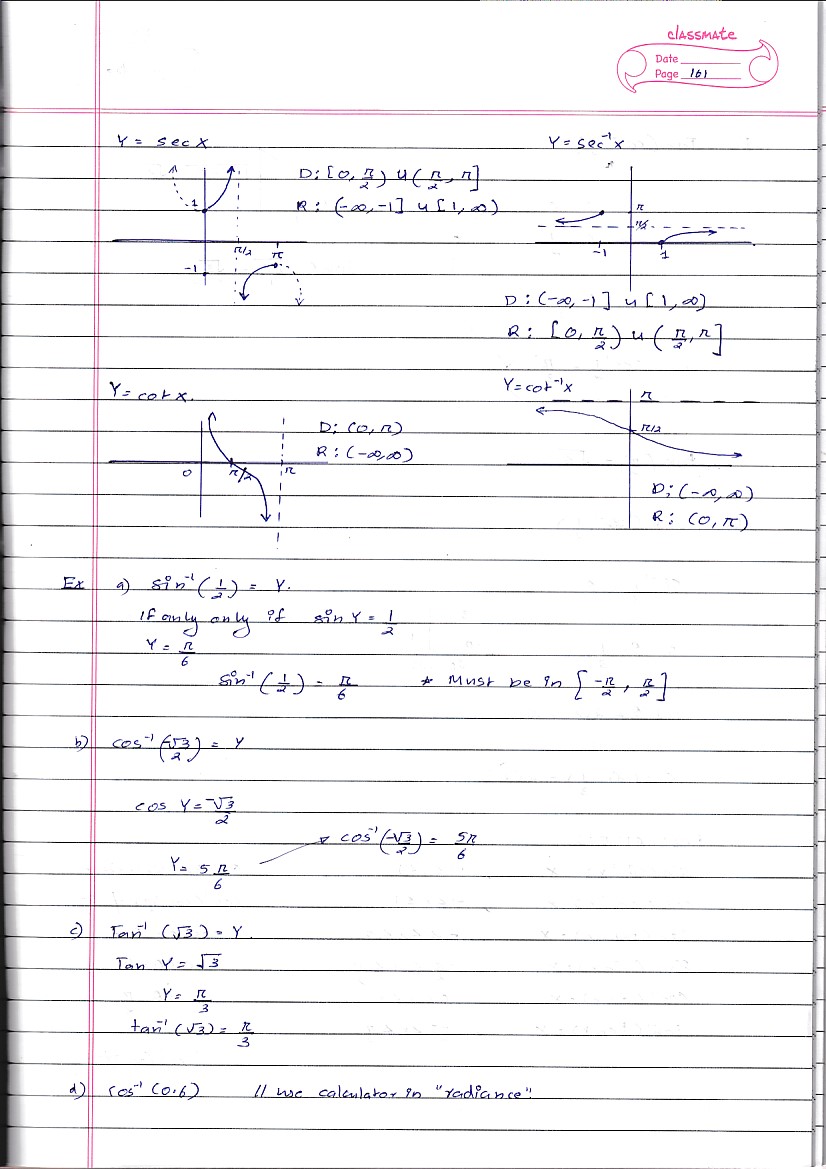 classmate
Date
Page 161
Y = sec x
D: [0, π/2) U (π/2, π]
R: (-∞, -1] U [1, ∞)
1
π/2 π
-1
Y = sec⁻¹x
π
π/2
-1 1
D: (-∞, -1] U [1, ∞)
R: [0, π/2) U (π/2, π]
Y = cot x.
D: (0, π)
R: (-∞, ∞)
0 π/2 π
Y = cot⁻¹x
π
π/2
D: (-∞, ∞)
R: (0, π)
Ex a) sin⁻¹(1/2) = Y.
If only only if sin Y = 1/2
Y = π/6
sin⁻¹(1/2) = π/6 * Must be in [-π/2, π/2]
b) cos⁻¹(-√3/2) = Y
cos Y = -√3/2
cos⁻¹(-√3/2) = 5π/6
Y = 5π/6
c) Tan⁻¹(√3) = Y.
Tan Y = √3
Y = π/3
tan⁻¹(√3) = π/3
d) cos⁻¹(0.6) // use calculator in "radiance".